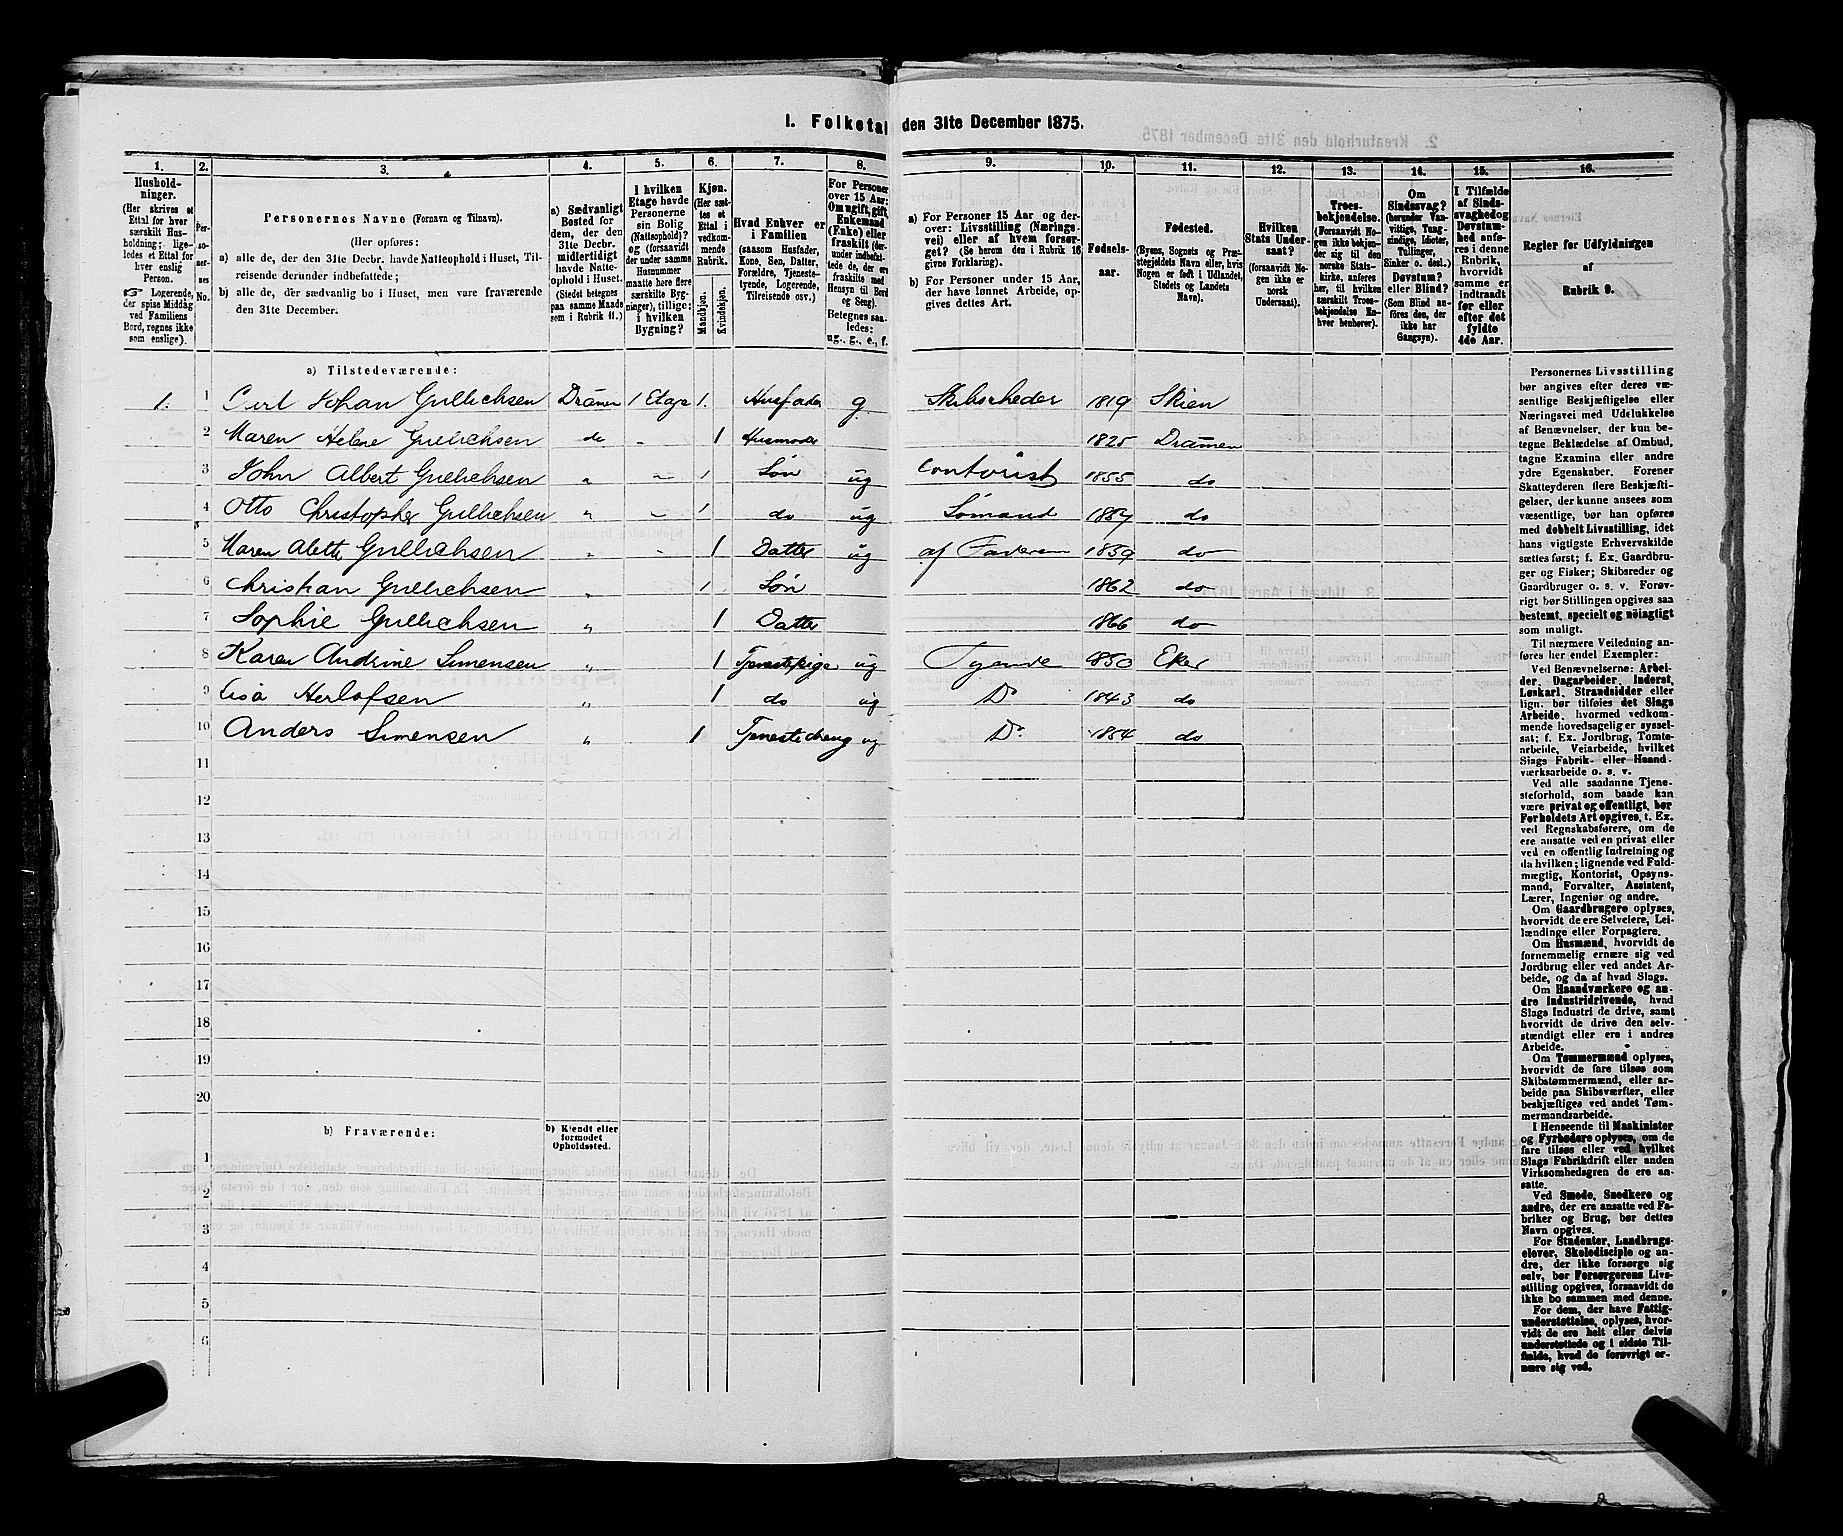 I. Folketal den 31te December 1875.
1. 2. 3. 4. 5. 6. 7. 8. 9. 10. 11. 12. 13. 14. 15. 16.
Husholdninger.
(Her skrives et Ettal for hver særskilt Husholdning; ligeledes et Ettal for hver enslig Person.
☞ Logerende, der spise Middag ved Familiens Bord, regnes ikke som enslige).
Personernes No.
Personernes Navne (Fornavn og Tilnavn).
(Her opføres:
a) alle de, der den 31te Decbr. havde Natteophold i Huset, Tilreisende derunder indbefattede;
b) alle de, der sædvanlig bo i Huset, men vare fraværende den 31te December.
a) Sædvanligt Bosted for dem, der den 31te Decbr. midlertidigt havde Natteophold i Huset.
(Stedet betegnes paa samme Maade som i Rubrik 11.)
I hvilken Etage havde Personerne sin Bolig (Natteophold)? og (forsaavidt der under samme Husnummer maatte høre flere særskilte Bygninger), tillige: i hvilken Bygning?
Kjøn.
(Her sættes et Ettal i vedkommende Rubrik.
Mandkjøn.
Kvindekjøn.
Hvad Enhver er i Familien
(saasom Husfader, Kone, Søn, Datter, Forældre, Tjenestetyende, Logerende, Tilreisende osv.)
For Personer over 15 Aar: Om ugift, gift, Enkemand (Enke) eller fraskilt (derunder indbefattede de, der ere fraskilte med Hensyn til Bord og Seng).
Betegnes saaledes: ug., g., e., f.
a) For Personer 15 Aar og derover: Livsstilling (Næringsvei) eller af hvem forsørget? (Se herom den i Rubrik 16 givne Forklaring).
b) For Personer under 15 Aar, der have lønnet Arbeide, opgives dettes Art.
Fødselsaar.
Fødested.
(Byens, Sognets og Præstegjeldets Navn eller, hvis Nogen er født i Udlandet, Stedets og Landets Navn).
Hvilken Stats Undersaat?
(forsaavidt Nogen ikke er norsk Undersaat).
Troesbekjendelse.
(Forsaavidt Nogen ikke bekjender sig til den norske Statskirke, anføres her, til hvilken særskilt Troesbekjendelse Enhver henhører).
Om Sindssvag? (herunder Vanvittige, Tungsindige, Idioter, Tullinger, Sinker o. desl.)
Døvstum? eller Blind? (Som Blind anføres den, der ikke har Gangsyn).
I Tilfælde af Sindssvaghed og Døvstumhed anføres i denne Rubrik, hvorvidt samme er indtraadt før eller efter det fyldte 4de Aar.
Regler for Udfyldningen af Rubrik 9.
a) Tilstedeværende:
1. 1 Carl Johan Gullichsen Dramen 1 Etage 1. Husfader g Skibsrheder 1819 Skien
2 Maren Helene Gullichsen do - 1 Husmoder 1825 Dramen
3 John Albert Gullichsen " - 1 Søn ug Contorist 1855 do
4 Otto Christopher Gullichsen " - 1 do ug Sømand 1857 do
5 Maren Alette Gullichsen " - 1 Datter ug af Faderen 1859 do
6 Christian Gullichsen " 1 Søn 1862 do
7 Sophie Gullichsen " 1 Datter 1866 do
8 Karen Andrine Simensen " 1 Tjenestepige ug Tyende 1850 Eker
9 Lisa Herlofsen " 1 do ug Do 1843 do
10 Anders Simensen " 1 Tjenestedreng ug Do 1854 do
11
12
13
14
15
16
17
18
19
20
b) Fraværende:
b) Kjendt eller formodet Opholdssted.
1
2
3
4
5
6
Personernes Livsstilling bør angives efter deres væsentlige Beskjæftigelse eller Næringsvei med Udelukkelse af Benævnelser, der kun betegne Beklædelse af Ombud, tagne Examina eller andre ydre Egenskaber. Forener Skatteyderen flere Beskjæftigelser, der kunne ansees som væsentlige, bør han opføres med dobbelt Livsstilling, idet hans vigtigste Erhvervskilde sættes først; f. Ex. Gaardbruger og Fisker; Skibsreder og Gaardbruger o. s. v. Forøvrigt bør Stillingen opgives saa bestemt, specielt og nöiagtigt som muligt.
Til nærmere Veiledning anføres her endel Exempler:
Ved Benævnelserne: Arbeider, Dagarbeider, Inderst, Løskarl, Strandsidder eller lign. bør tilføies det Slags Arbeide, hvormed vedkommende hovedsagelig er sysselsat; f. Ex. Jordbrug, Tomtearbeide, Veiarbeide, hvilket Slags Fabrik- eller Haandværksarbeide o. s. v.
Ved alle saadanne Tjenesteforhold, som baade kan være privat og offentligt, bør Forholdets Art opgives, t. Ex. ved Regnskabsførere, om de ere ansatte ved en privat eller ved en offentlig Indretning og da hvilken; lignende ved Fuldmægtig, Kontorist, Opsynsmand, Forvalter, Assistent, Lærer, Ingeniør og andre.
Om Gaardbrugere oplyses, hvorvidt de ere Selveiere, Leilændinge eller Forpagtere.
Om Husmænd, hvorvidt de fornemmelig ernære sig ved Jordbrug eller ved andet Arbeide, og da af hvad Slags.
Om Haandværkere og andre Industridrivende, hvad Slags Industri de drive, samt hvorvidt de drive den selvstændigt eller ere i andres Arbeide.
Om Tømmermænd oplyses, hvorvidt de fare tilsøs som Skibstømmermænd, eller arbeide paa Skibsværfter, eller beskjæftiges ved andet Tømmermandsarbeide.
I Henseende til Maskinister og Fyrbødere oplyses, om de fare tilsøs eller ved hvilket Slags Fabrikdrift eller anden Virksomhedsgren de ere ansatte.
Ved Smede, Snedkere og andre, der ere ansatte ved Fabriker og Brug, bør dettes Navn opgives.
For Studenter, Landbrugselever, Skoledisciple og andre, der ikke forsørge sig selv, bør Forsørgerens Livsstilling opgives, forsaavidt de ikke bo sammen med denne.
For dem, der have Fattigunderstøttelse, oplyses, hvorvidt de ere helt eller delvis understøttede og i sidste Tilfælde, hvad de forøvrigt ernære sig ved.